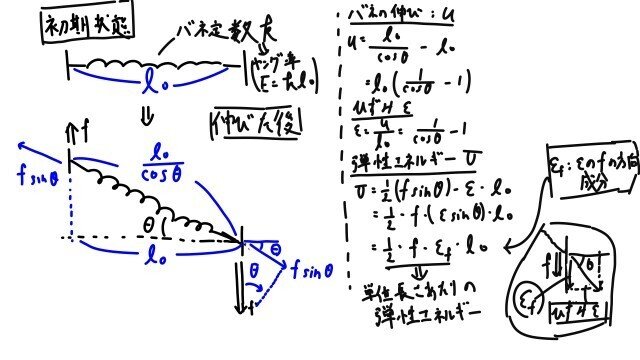 初期状態
バネ定数 k
l₀
ヤング率
E = kl₀
伸びた後
f
f sinθ
l₀/cosθ
θ
l₀
θ
θ
f sinθ
f
バネの伸び : u
u = l₀/cosθ - l₀
= l₀(1/cosθ - 1)
ひずみ ε
ε = u/l₀ = 1/cosθ - 1
弾性エネルギー U
U = 1/2 (f sinθ)・ε・l₀
= 1/2・f・(ε sinθ)・l₀
= 1/2・f・ε_f・l₀
単位長さあたりの
弾性エネルギー
ε_f : εのfの方向
成分
f
θ
ε_f
ひずみ ε